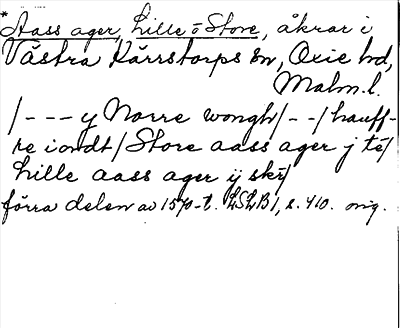 * Aass ager, Lille o Store, åkrar i
Västra Kärrstorps sn, Oxie hd,
Malm.l.
/ - - - y Norre wongh / - - / hauff-
re iordt / Store aass ager j tr/
Lille aass ager ij skr/
förra delen av 1570-t. LSLB 1, s. 410. orig.